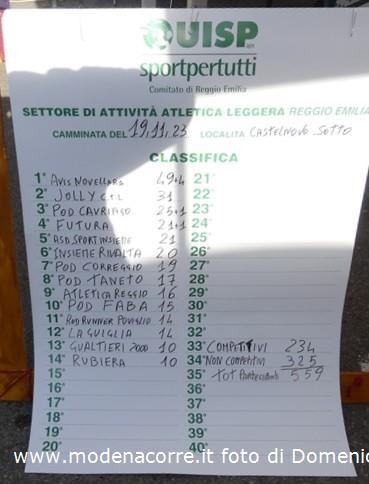 UISP
sportpertutti
Comitato di Reggio Emilia
SETTORE DI ATTIVITÀ ATLETICA LEGGERA REGGIO EMILIA
CAMMINATA DEL 19,11,23 LOCALITÀ CASTELNOVO SOTTO
CLASSIFICA
1° AVIS NOVELLARA 49+4 21°
2° JOLLY C.T.L 31 22°
3° POD CAVRIAGO 25+1 23°
4° FUTURA 21+1 24°
5° ASD SPORT INSIEME 21 25°
6° INSIEME RIVALTA 20 26°
7° POD CORREGGIO 19 27°
8° POD TANETO 17 28°
9° ATLETICA REGGIO 16 29°
10° POD FABA 15 30°
11° POD RUNNER POVIGLIO 14 31°
12° LA GUIGLIA 14 32°
13° GUALTIERI 2000 10 33° COMPETITIVI 234
14° RUBIERA 10 34° NON COMPETITIVI 325
15° 35° TOT Partecipanti 559
16° 36°
17° 37°
18° 38°
19° 39°
20° 40°
www.modenacorre.it foto di Domenic